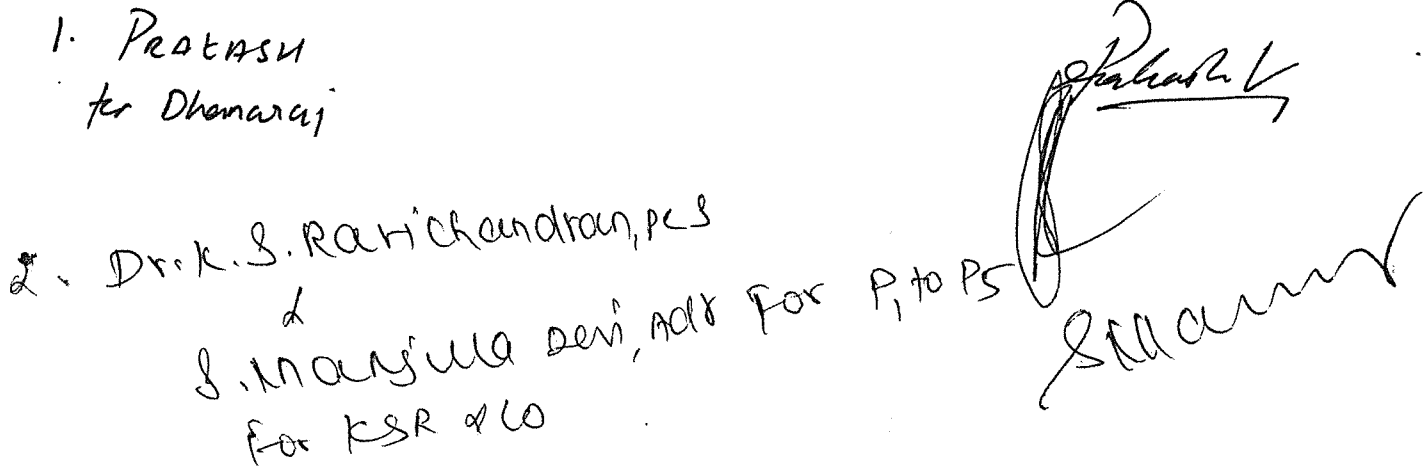 1. PRAKASH
for Dhanaraj
Prakash V
2. Dr. K. S. Ravichandran, PCS
&
S. Manjula Devi, Adv For P1 to P5
For KSR & CO